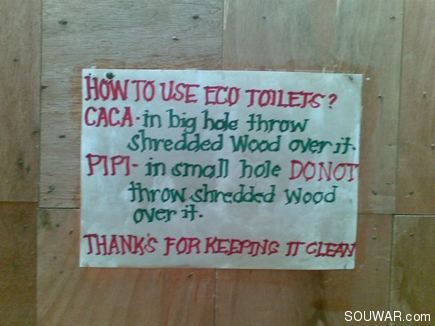 HOW TO USE ECO TOILETS?
CACA- in big hole throw
shredded Wood over it.
PIPI- in small hole DO NOT
throw shredded Wood
over it.
THANK'S FOR KEEPING IT CLEAN
SOUWAR.com